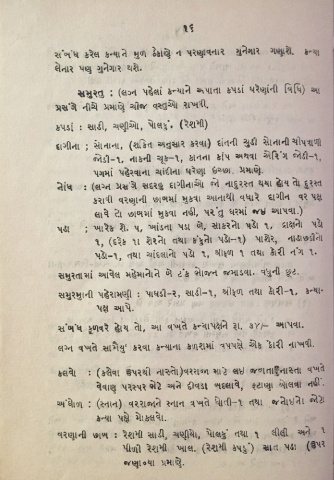 ૧૬
સંબંધ કરેલ કન્યાને મુળ ઠેકાણે ન પરણાવનાર ગુનેગાર ગણાશે. કન્યા
લેનાર પણ ગુનેગાર થશે.
સમુરતુ : (લગ્ન પહેલાં કન્યાને અપાતા કપડાં ઘરેણાંની વિધિ) આ
પ્રસંગે નીચે પ્રમાણે ચીજ વસ્તુઓ રાખવી.
કપડાં : સાડી, ચણીઓ, પોલકું, (રેશમી)
દાગીના : સોનાના, (શક્તિ અનુસાર કરવા) દાંતની ચુડી સોનાની ચીપવાળી
જોડી-૧, નાકની ચૂક-૧, કાનના કાપ અથવા એરિંગ જોડી-૧,
પગમાં પહેરવાના ચાંદીના ઘરેણા ઇચ્છા પ્રમાણે.
નોંધ : (લગ્ન પ્રસંગે સદરહુ દાગીનાઓ જો નાદુરસ્ત થયા હોય તો દુરસ્ત
કરાવી વરણાની છાબમાં મુકવા આનાથી વધારે દાગીના વર પક્ષ
લાવે તો છાબમાં મુકવા નહી, પરંતુ ઘરમાં જઈ આપવા.)
પડા : ખારેક શે. ૫, ખાંડના પડા બે, સાકરનો પડો ૧, દ્રાક્ષનો પડો
૧, (દરેક ૧ા શેરનો તથા કંકુનો પડો-૧) પાશેર, નાડાછડીનો
પડો-૧, તથા ચાંદલાનો પડો ૧, શ્રીફળ ૧ તથા કોરી નંગ ૧.
સમુરતામાં આવેલ મહેમાનોને બે ટંક ભોજન જમાડવા. વધુની છૂટ.
સમુરતાની પહેરામણી : પાઘડી-૨, સાડી-૧, શ્રીફળ તથા કોરી-૧, કન્યા-
પક્ષ આપે.
સંબંધ કુળવરે હોય તો, આ વખતે કન્યાપક્ષને રા. આપવા.
લગ્ન વખતે કરવા કન્યાના કળશમાં વરપક્ષે એક કોરી નાખવી.
કલવો : (કલેવા ઉપરથી નાસ્તો) વરરાજા માટે લઈ જવાતા નાસ્તા વખતે
વેવાણ પરસ્પર ભેટે અને દીવડા બદલાવે, ફટાણા બોલવા નહીં.
અંઘોળ : (સ્નાન) વરરાજાને સ્નાન વખતે ધોતી-૧ તથા જનોઈનો જોટો
કન્યા પક્ષે મોકલવો.
વરણાની છાબ : રેશમી સાડી, ચણીયો, પોલકું તથા ૧ લીલી અને ૧
પીળી રેશમી ખાલ. (રેશમી કપડું) સાત પડા (ઉપર
જણાવ્યા પ્રમાણે.